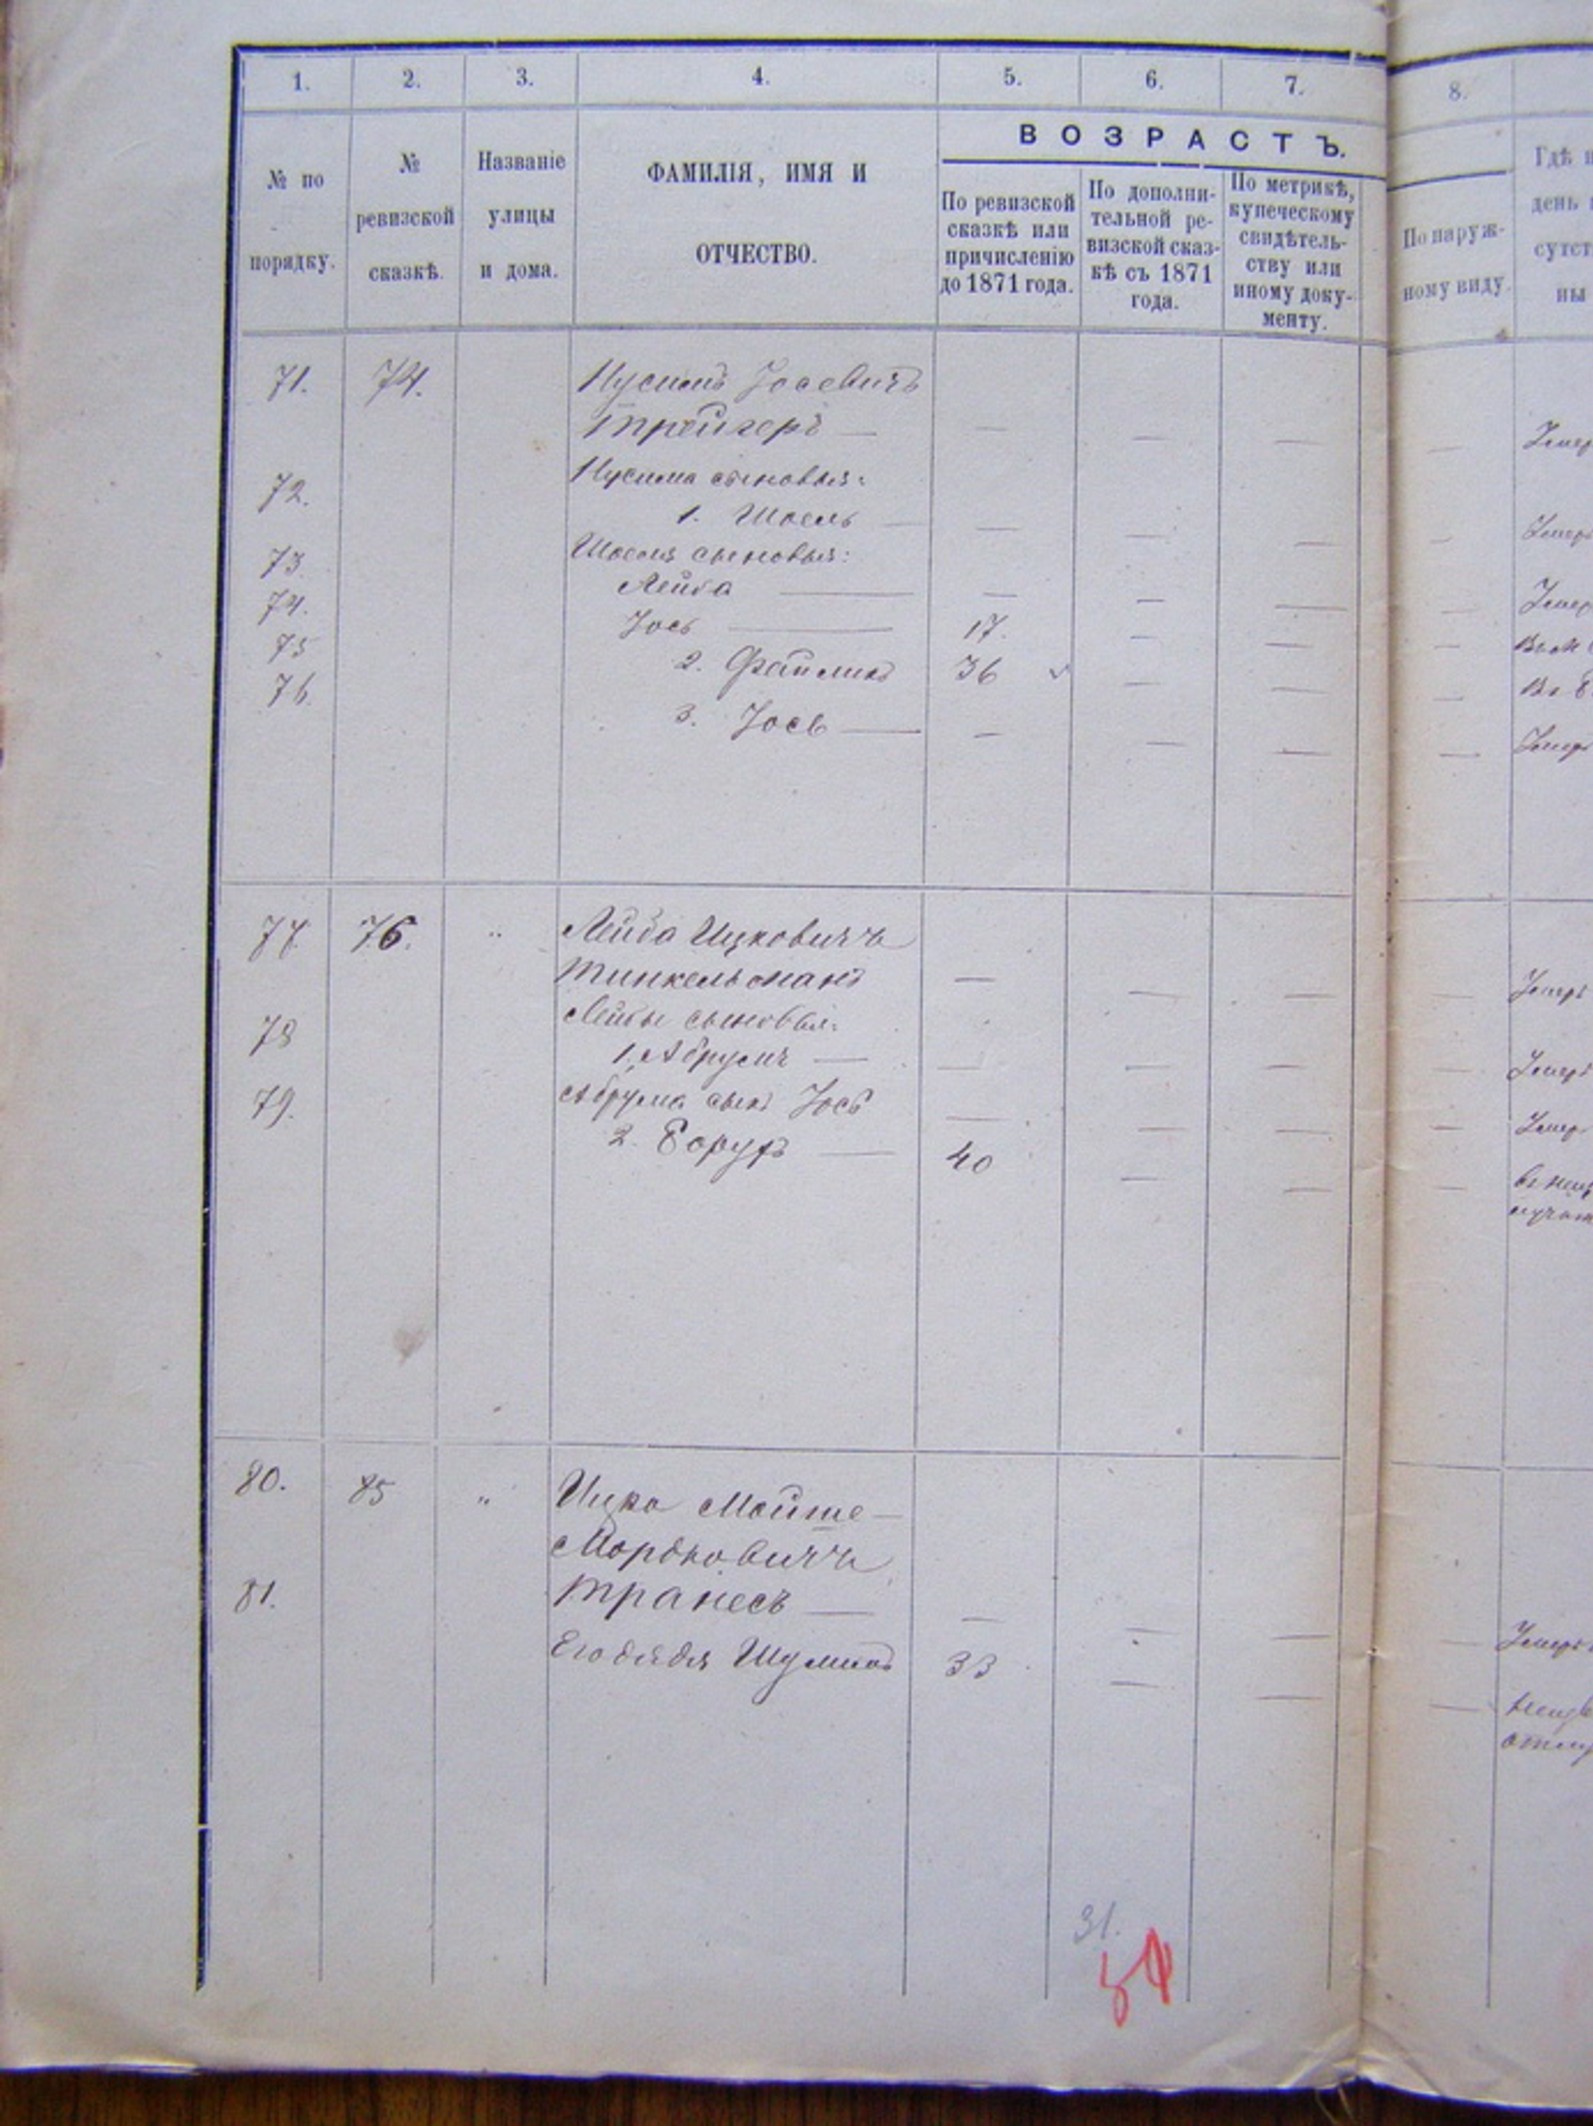 1. 2. 3. 4. 5. 6. 7. 8.
ВОЗРАСТЪ.
№ по
порядку.
№
ревизской
сказкѣ.
Названіе
улицы
и дома.
ФАМИЛІЯ, ИМЯ И
ОТЧЕСТВО.
По ревизской
сказкѣ или
причисленію
до 1871 года.
По дополни-
тельной ре-
визской сказ-
кѣ съ 1871
года.
По метрикѣ,
купеческому
свидѣтель-
ству или
иному доку-
менту.
По наруж-
ному виду.
Гдѣ
день
сутст
ны
71. 74. Нусимъ Іосевичъ
Трейгеръ — — — — — Умер
72. Нусима сыновья:
1. Шоель — — — — — Умер
73. Шоеля сыновья:
74. Лейба — — — — — Умер
75 Іось — 17. — — —
76. 2. Файликъ 36 — — —
3. Іось — — — — — Умер
77 76. " Лейба Ицковичъ
Тинкельманъ — — — — Умеръ
78 Лейбы сыновья:
1. Абрумъ — — — — — Умеръ
79. Абрума сынъ Іось — — — — Умер
2. Борухъ — 40 — — —
80. 85 " Ицко Мойше-
Мордковичъ
81. Транесъ — — — — — Умеръ
Его дядя Шулимъ 33 — — —
31.